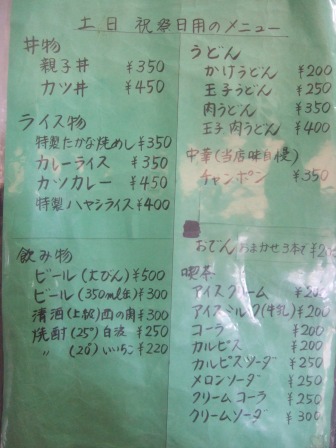 土日 祝祭日用のメニュー
丼物
親子丼 ¥350
カツ丼 ¥450
ライス物
特製たかな焼めし ¥350
カレーライス ¥350
カツカレー ¥450
特製ハヤシライス ¥400
飲み物
ビール(大びん) ¥500
ビール(350ml缶) ¥300
清酒(上撰)西の関 ¥300
焼酎(25°)白波 ¥250
〃 (20°)いいちこ ¥220
うどん
かけうどん ¥200
玉子うどん ¥250
肉うどん ¥350
玉子肉うどん ¥400
中華(当店味自慢)
チャンポン ¥350
おでん おまかせ3本で
喫茶
アイスクリーム ¥200
アイスミルク(牛乳) ¥200
コーラ ¥200
カルピス ¥200
カルピスソーダ ¥250
メロンソーダ ¥250
クリームコーラ ¥250
クリームソーダ ¥300